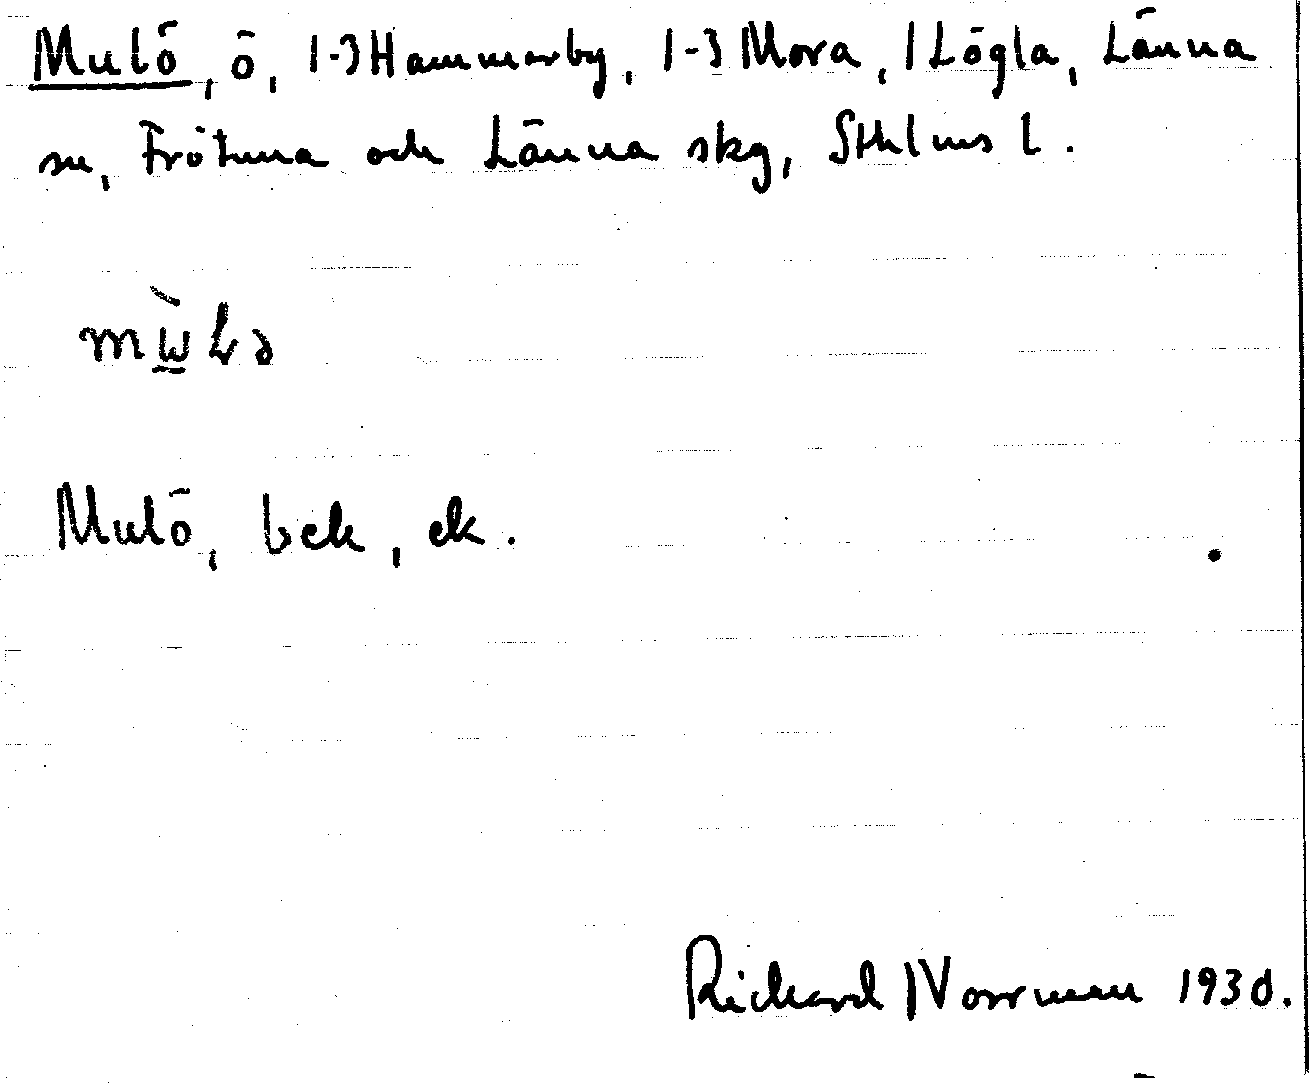 Mulö, ö, 1-3 Hammarby, 1-3 Mora, 1 Lögla, Länna
sn, Frötuna och Länna skg, Sthlms l.
Mulö, bek, ek.
Richard Norrman 1930.